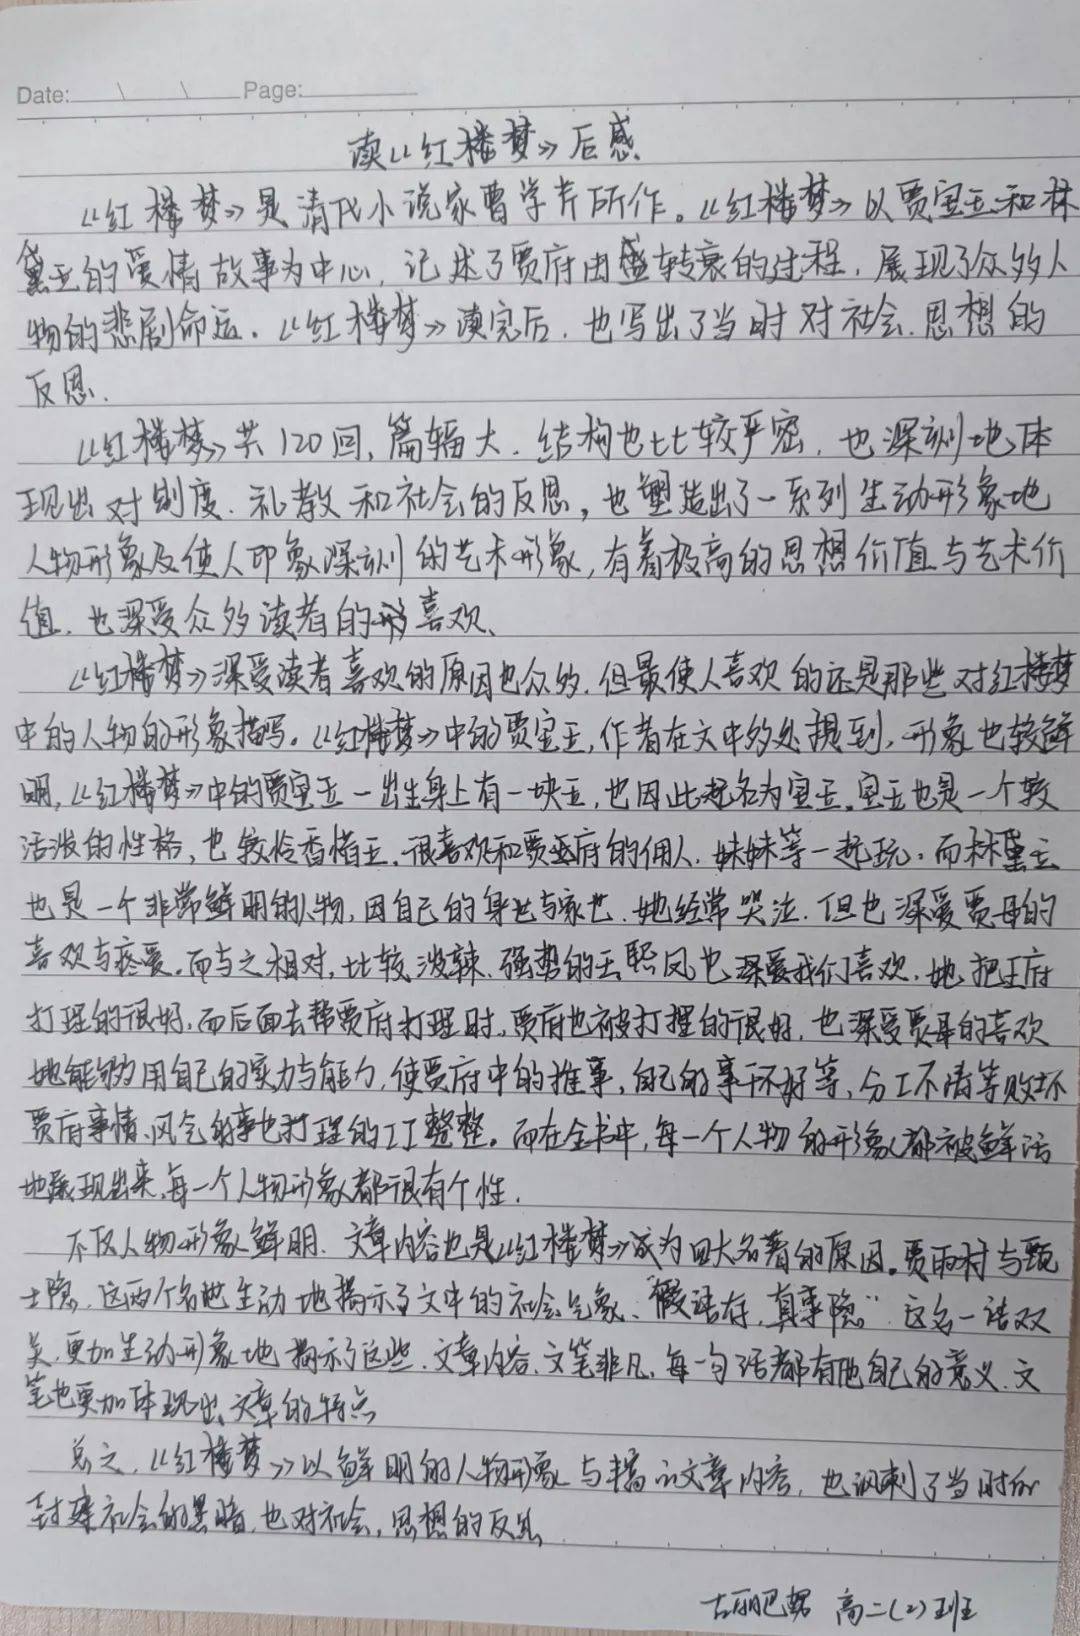 Date: \ \ Page:
读《红楼梦》后感
《红楼梦》是清代小说家曹学芹所作。《红楼梦》以贾宝玉和林
黛玉的爱情故事为中心,记述了贾府由盛转衰的过程,展现了众多人
物的悲剧命运.《红楼梦》读完后.也写出了当时对社会.思想的
反思.
《红楼梦》共120回,篇辐大.结构也比较严密,也深刻地体
现出对制度.礼教和社会的反思,也塑造出了一系列生动形象地
人物形象及使人印象深刻的艺术形象,有着极高的思想价值与艺术价
值.也深受众多读者的喜欢、
《红楼梦》深受读者喜欢的原因也众多.但最使人喜欢的还是那些对红楼梦
中的人物的形象描写。《红楼梦》中的贾宝玉,作者在文中多处提到,形象也较鲜
明,《红楼梦》中的贾宝玉一出生身上有一块玉,也因此起名为宝玉.宝玉也是一个较
活泼的性格,也较怜香惜玉.很喜欢和贾府的佣人.妹妹等一起玩.而林黛玉
也是一个非常鲜明的人物,因自己的身世与家世.她经常哭泣.但也深爱贾母的
喜欢与疼爱.而与之相对,比较泼辣、强势的王熙凤也深爱我们喜欢.她把王府
打理的很好,而后面去帮贾府打理时.贾府也被打理的很好.也深受贾母的喜欢
她能够用自己的实力与能力,使贾府中的推事,自己的事不好等,分工不清等败坏
贾府事情、风气的事也打理的工工整整。而在全书中,每一个人物的形象都被鲜活
地展现出来,每一个人物形象都很有个性.
不仅人物形象鲜明.文章内容也是《红楼梦》成为四大名著的原因。贾雨村与甄
士隐.这两个名也生动地揭示了文中的社会气象、"假语存,真事隐"这名一语双
关.更加生动形象地揭示了这些.文章内容.文笔非凡,每一句话都有他自己的意义.文
笔也更加体现出文章的特点
总之,《红楼梦》以鲜明的人物形象与文章内容,也讽刺了当时的
封建社会的黑暗.也对社会,思想的反思
高二(2)班